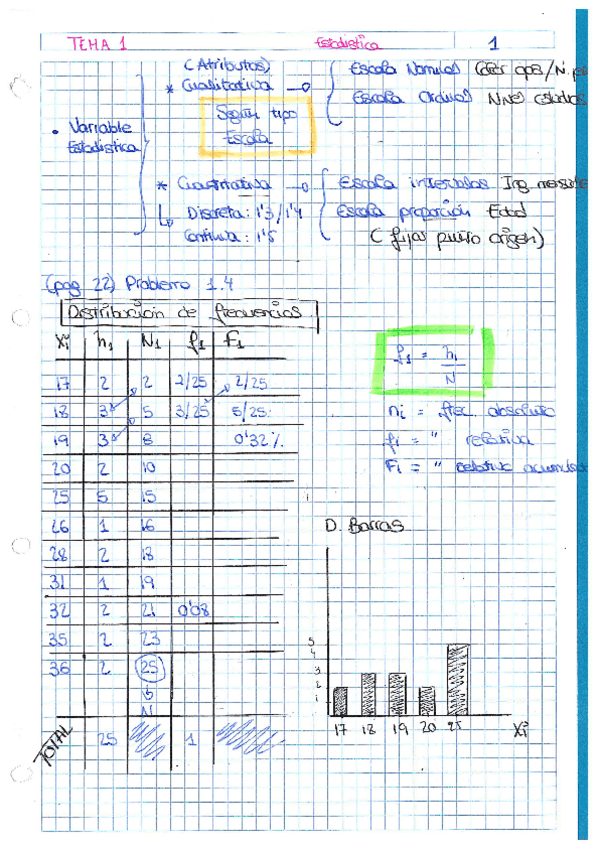 TEMA 1 Estadistica 1
(Atributos)
* Cualitativa
Según tipo
Escala
Escala Nominal
Escala Ordinal
• Variable
Estadistica
* Cuantitativa
Discreta: 1'3/1'4
Continua: 1'5
Escala intervalos
Escala proporción Edad
(fijar punto origen)
(pag 22) Problema 1.4
Distribución de frecuencias
Xi n1 N1 f1 F1
17 2 2 2/25 2/25
18 3 5 3/25 5/25
19 3 8 0'32%
20 2 10
25 5 15
26 1 16
28 2 18
31 1 19
32 2 21 0'08
35 2 23
36 2 25
N
TOTAL 25 1
f1 = n1
N
ni = frec. absoluta
fi = " relativa
Fi = " relativa acumulad
D. Barras
5
4
3
2
1
17 18 19 20 25 Xi